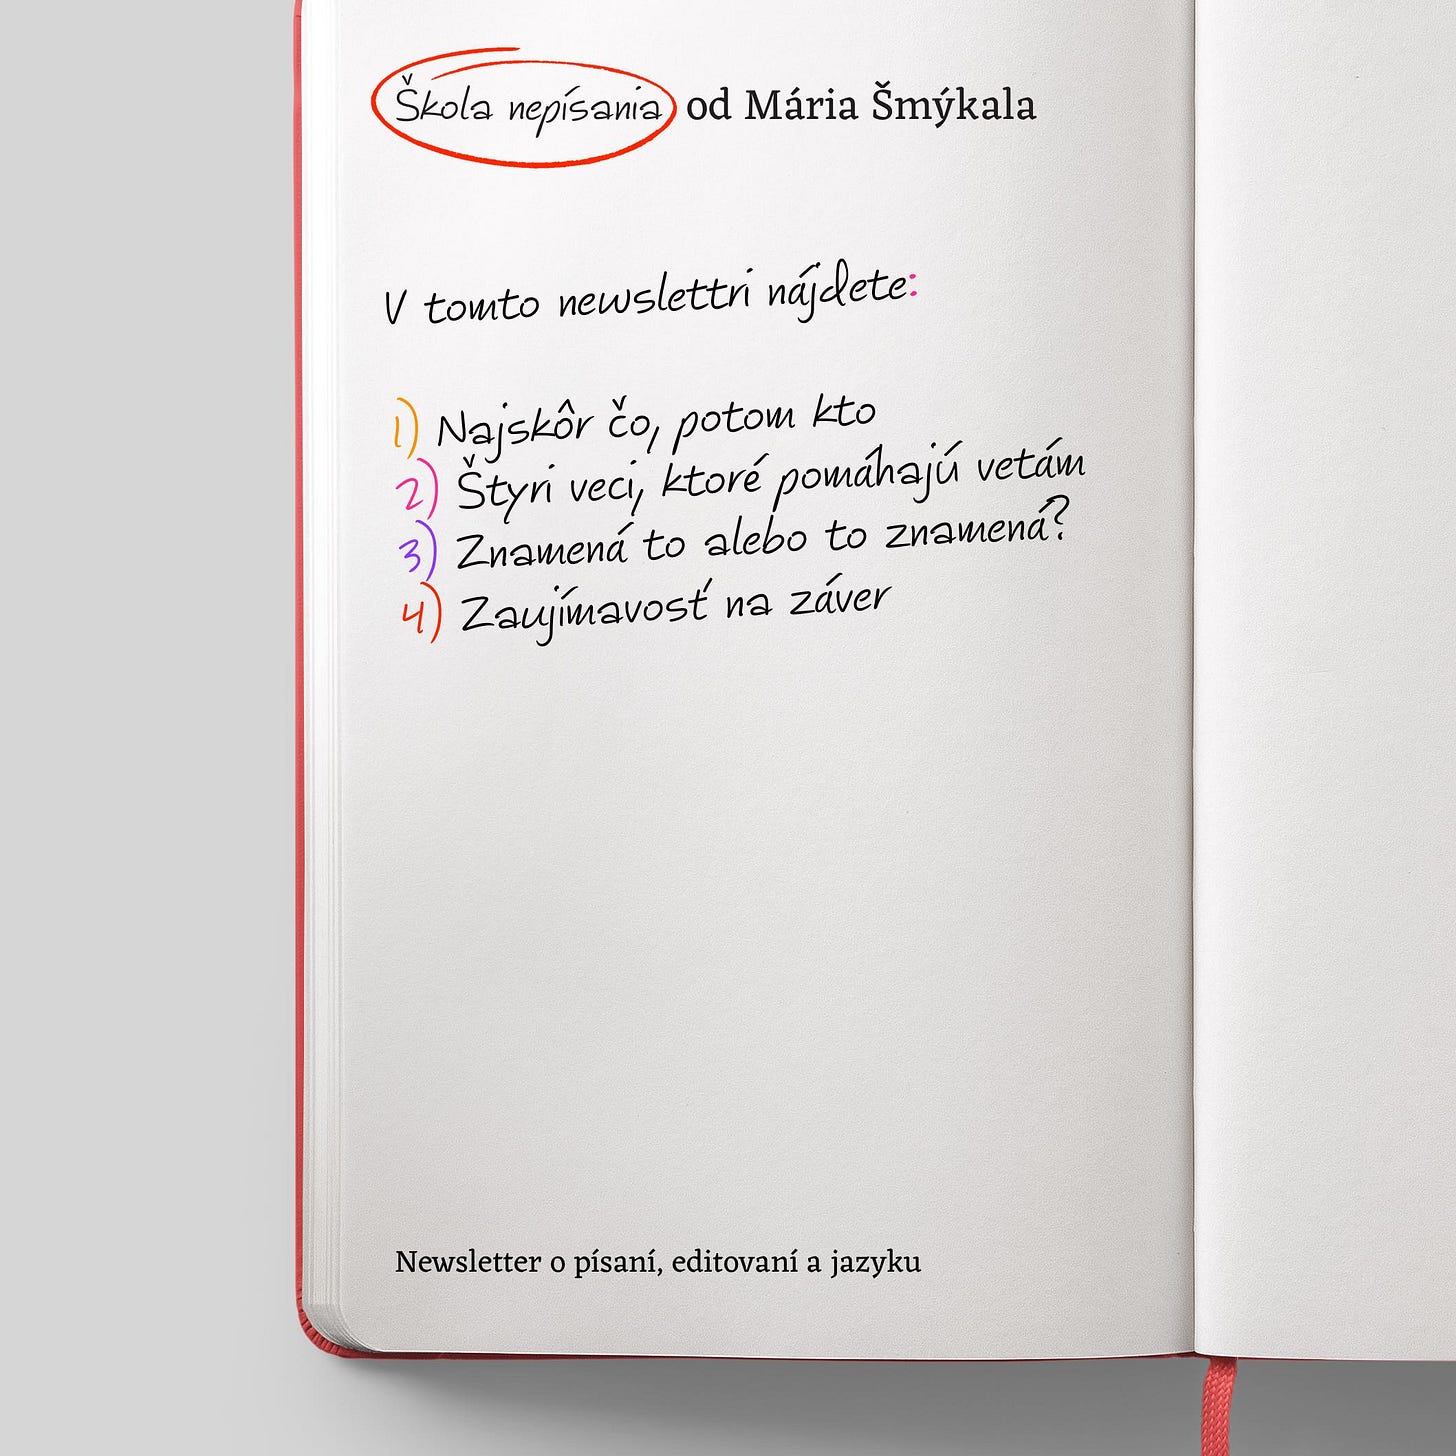 Škola nepísania od Mária Šmýkala
V tomto newslettri nájdete:
1) Najskôr čo, potom kto
2) Štyri veci, ktoré pomáhajú vetám
3) Znamená to alebo to znamená?
4) Zaujímavosť na záver
Newsletter o písaní, editovaní a jazyku